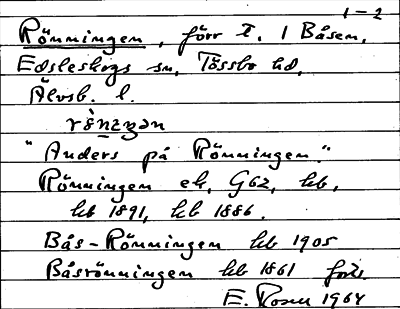 1-2
Rönningen, förr t. 1 Båsen,
Edsleskogs sn, Tössbo hd,
Älvsb. l.
"Anders på Rönningen."
Rönningen ek, G62, hb,
hb 1891, hb 1886.
Bås-Rönningen hb 1905
Båsrönningen hb 1861 förts.
E. Rosen 1964